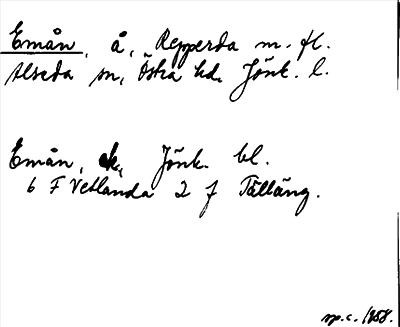 Emån, å, Repperda m. fl.
Alseda sn, Östra hd. Jönk. l.
Emån, ek, Jönk. bl.
6 F Vetlanda 2 f Tälläng.
sp.c. 1858.